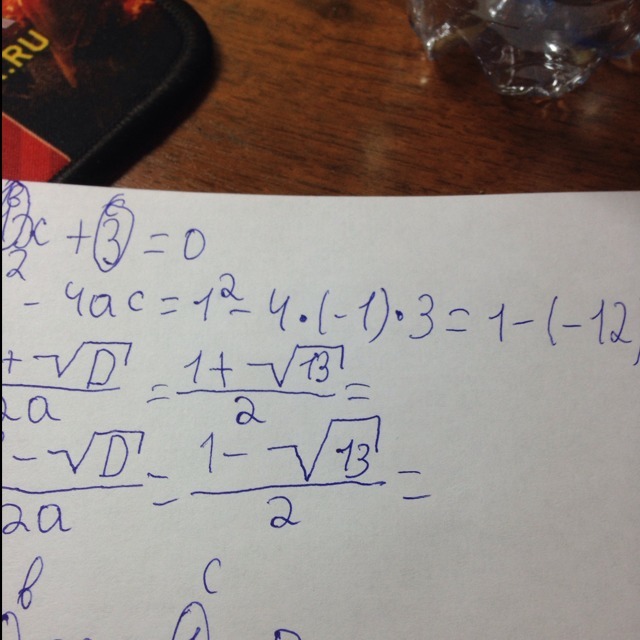 .RU
x + 3 = 0
2
- 4ac = 1² - 4·(-1)·3 = 1 - (-12
+ √D / 2a = 1 + √13 / 2 =
- √D / 2a = 1 - √13 / 2 =
b c